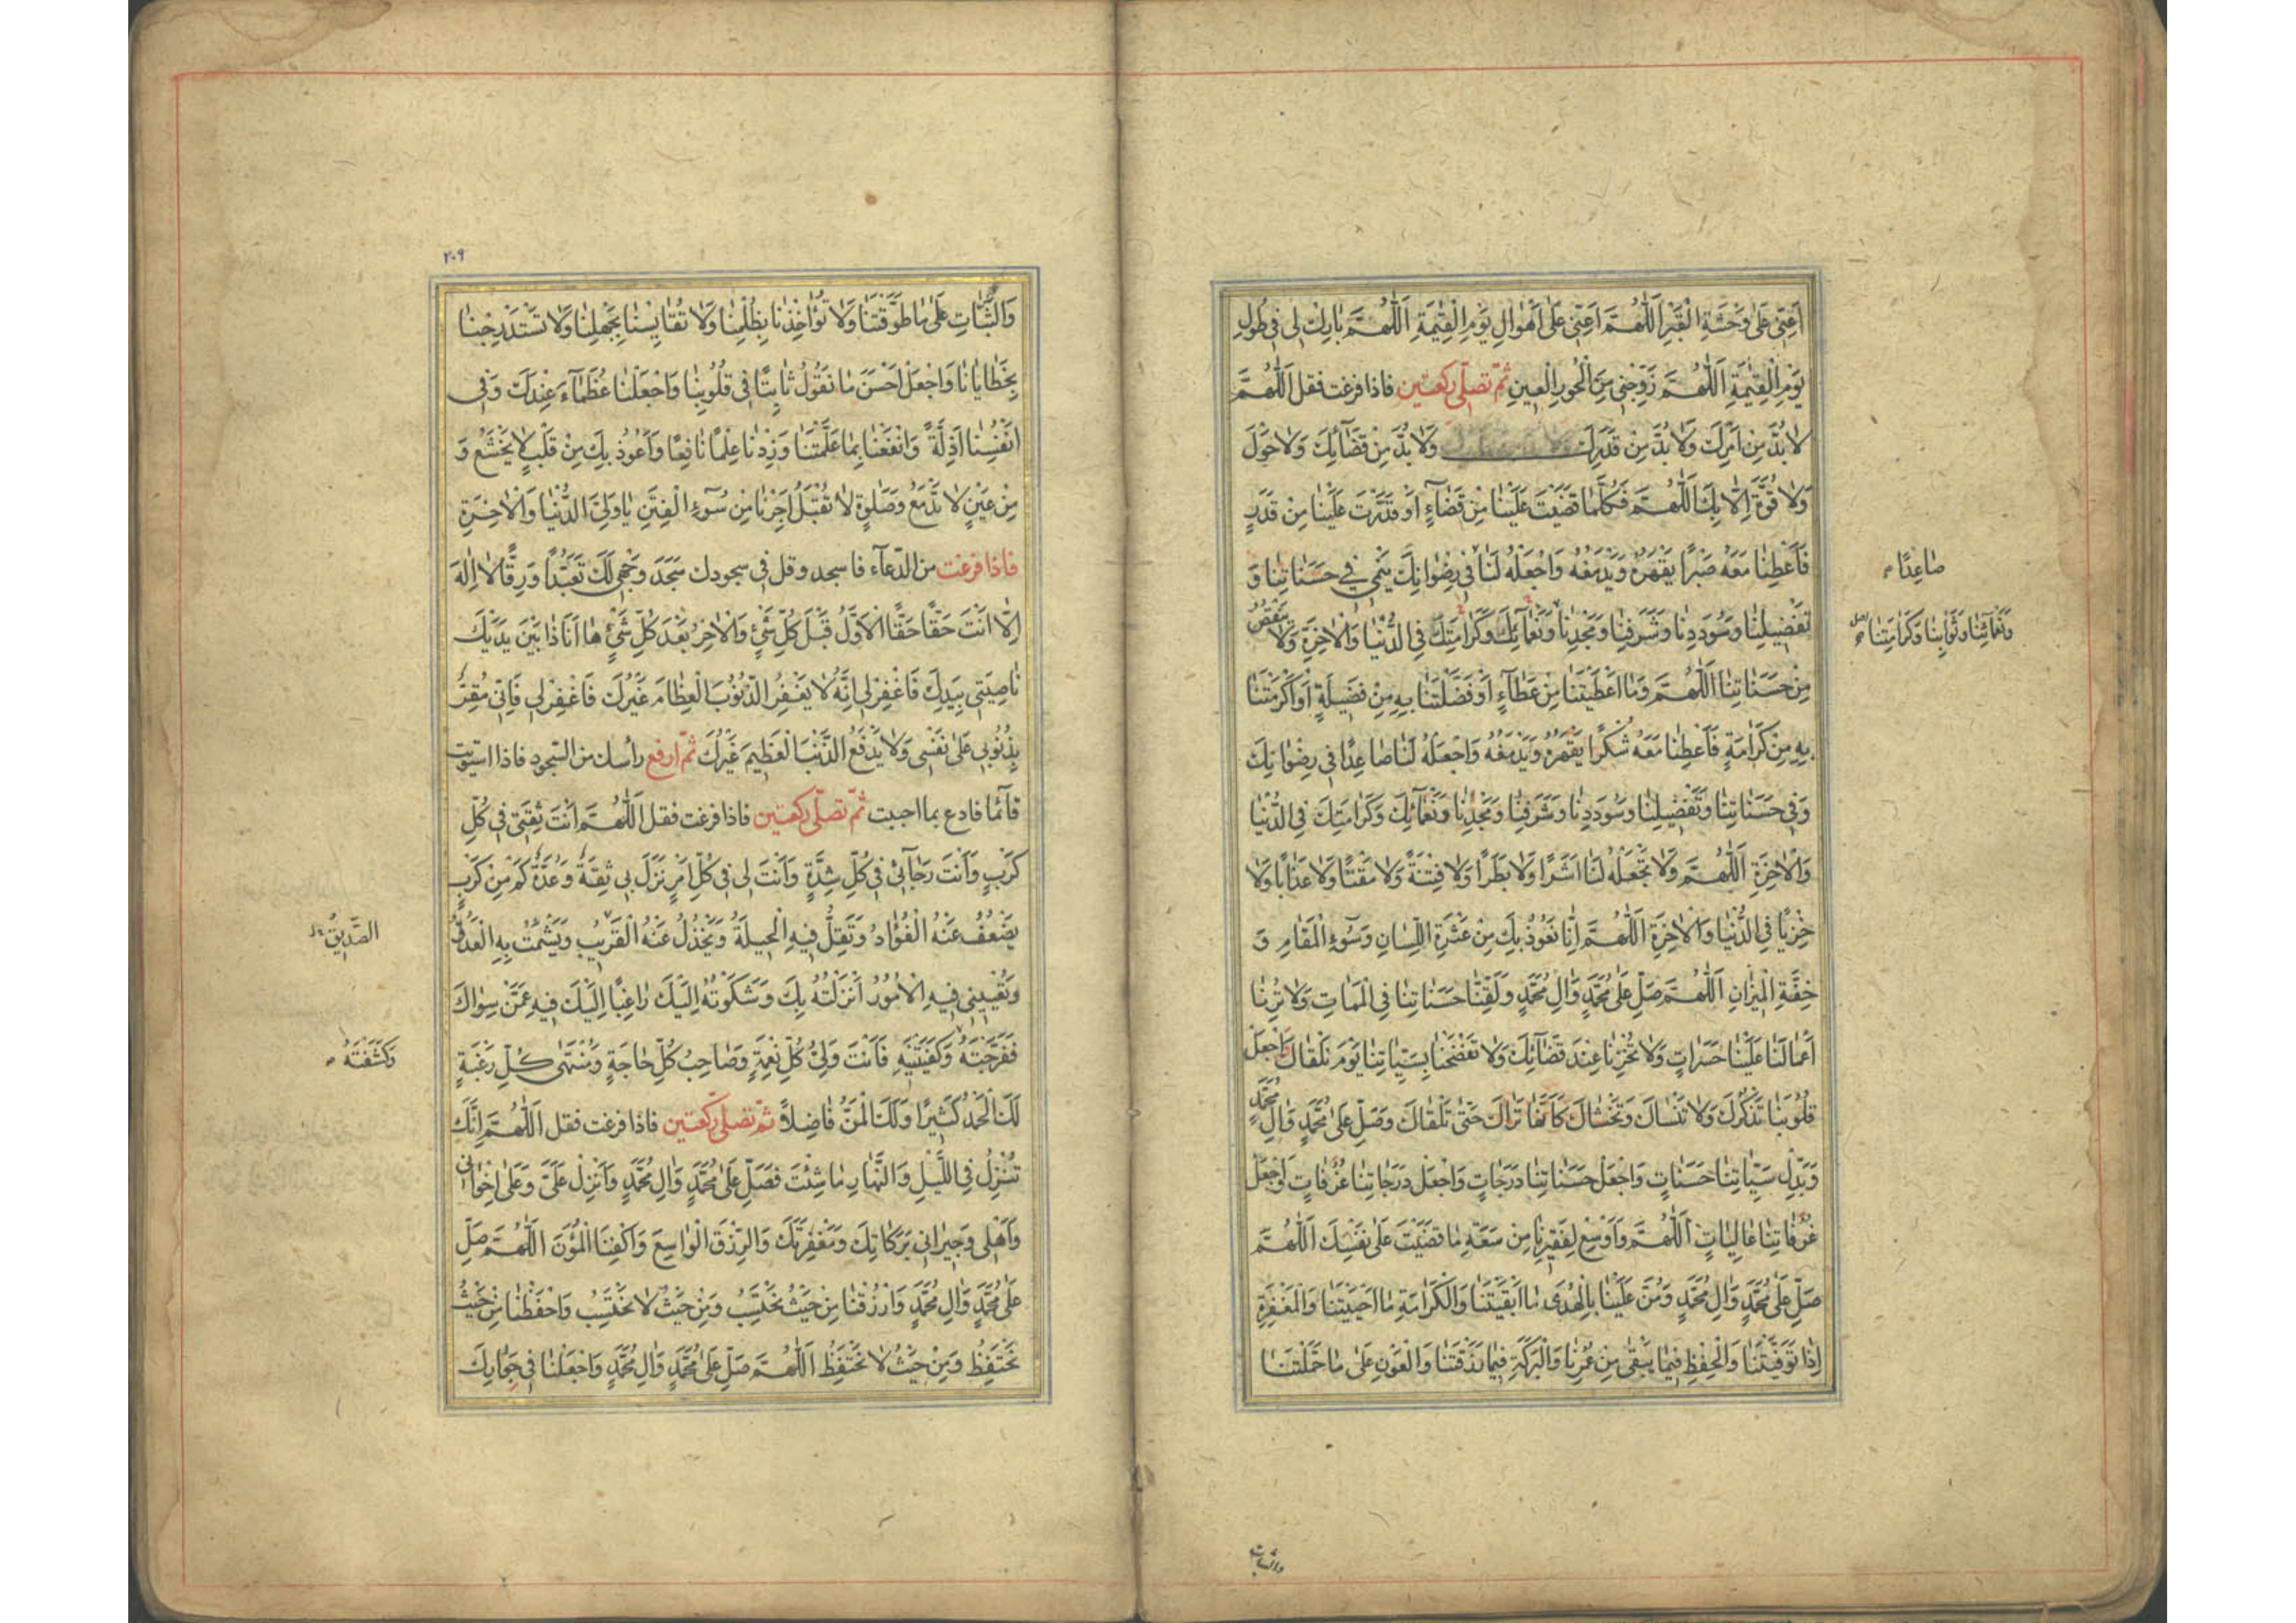 اَعِنّي عَلىٰ وَحْشَةِ الْقَبْرِ اَللّٰهُمَّ اَعِنّي عَلىٰ اَهْوالِ يَوْمِ الْقِيٰمَةِ اَللّٰهُمَّ بارِكْ لي في طُولِ
يَوْمِ الْقِيٰمَةِ اَللّٰهُمَّ زَوِّجْني مِنَ الْحُورِ الْعينِ ثمّ تصلّى ركعتين فاذا فرغت فقل اَللّٰهُمَّ
لا بُدَّ مِنْ اَمْرِكَ وَلا بُدَّ مِنْ قَدَرِكَ وَلا بُدَّ مِنْ قَضآئِكَ وَلا حَوْلَ
وَلا قُوَّةَ اِلّا بِكَ اَللّٰهُمَّ فَكُلَّما قَضَيْتَ عَلَيْنا مِنْ قَضآءٍ اَوْ قَدَّرْتَ عَلَيْنا مِنْ قَدَرٍ
فَاَعْطِنا مَعَهُ صَبْرًا يَقْهَرُهُ وَيَدْمَغُهُ وَاجْعَلْهُ لَنا في رِضْوانِكَ يَنْمي في حَسَناتِنا وَ
صاعِدًا
تَفْضيلِنا وَسُودَدِنا وَشَرَفِنا وَمَجْدِنا وَنَعْمآئِكَ وَكَرامَتِكَ فِي الدُّنْيا وَالْاٰخِرَةِ وَلا تَنْقُصْ
وَنَعْمائِنا وَثَوابِنا وَكَرامَتِنا
مِنْ حَسَناتِنا اَللّٰهُمَّ وَما اَعْطَيْتَنا مِنْ عَطآءٍ اَوْ فَضَّلْتَنا بِهِ مِنْ فَضيلَةٍ اَوْ اَكْرَمْتَنا
بِهِ مِنْ كَرامَةٍ فَاَعْطِنا مَعَهُ شُكْرًا يَقْهَرُهُ وَيَدْمَغُهُ وَاجْعَلْهُ لَنا صاعِدًا في رِضْوانِكَ
وَفي حَسَناتِنا وَتَفْضيلِنا وَسُودَدِنا وَشَرَفِنا وَمَجْدِنا وَنَعْمآئِكَ وَكَرامَتِكَ فِي الدُّنْيا
وَالْاٰخِرَةِ اَللّٰهُمَّ وَلا تَجْعَلْهُ لَنا اَشَرًا وَلا بَطَرًا وَلا فِتْنَةً وَلا مَقْتًا وَلا عَذابًا وَلا
خِزْيًا فِي الدُّنْيا وَالْاٰخِرَةِ اَللّٰهُمَّ اِنّا نَعُوذُ بِكَ مِنْ عَثْرَةِ اللِّسانِ وَسُوٓءِ الْمَقامِ وَ
خِفَّةِ الْميزانِ اَللّٰهُمَّ صَلِّ عَلىٰ مُحَمَّدٍ وَاٰلِ مُحَمَّدٍ وَلَقِّنا حَسَناتِنا فِي الْمَماتِ وَلا تُرِنا
اَعْمالَنا عَلَيْنا حَسَراتٍ وَلا تُخْزِنا عِنْدَ قَضآئِكَ وَلا تَفْضَحْنا بِسَيِّئاتِنا يَوْمَ نَلْقاكَ وَاجْعَلْ
قُلُوبَنا تَذْكُرُكَ وَلا تَنْساكَ وَتَخْشاكَ كَاَنَّها تَراكَ حَتّىٰ تَلْقاكَ وَصَلِّ عَلىٰ مُحَمَّدٍ وَاٰلِ مُحَمَّدٍ
وَبَدِّلْ سَيِّئاتِنا حَسَناتٍ وَاجْعَلْ حَسَناتِنا دَرَجاتٍ وَاجْعَلْ دَرَجاتِنا غُرُفاتٍ وَاجْعَلْ
غُرُفاتِنا عالِياتٍ اَللّٰهُمَّ وَاَوْسِعْ لِفَقيرِنا مِنْ سَعَةِ ما قَضَيْتَ عَلىٰ نَفْسِكَ اَللّٰهُمَّ
صَلِّ عَلىٰ مُحَمَّدٍ وَاٰلِ مُحَمَّدٍ وَمُنَّ عَلَيْنا بِالْهُدىٰ ما اَبْقَيْتَنا وَالْكَرامَةِ ما اَحْيَيْتَنا وَالْمَغْفِرَةِ
اِذا تَوَفَّيْتَنا وَالْحِفْظِ فيما يَبْقىٰ مِنْ عُمْرِنا وَالْبَرَكَةِ فيما رَزَقْتَنا وَالْعَوْنِ عَلىٰ ما حَمَّلْتَنا
والثبات
٢٠٩
وَالثَّباتِ عَلىٰ ما طَوَّقْتَنا وَلا تُؤاخِذْنا بِظُلْمِنا وَلا تُقايِسْنا بِجَهْلِنا وَلا تَسْتَدْرِجْنا
بِخَطايانا وَاجْعَلْ اَحْسَنَ ما نَقُولُ ثابِتًا في قُلُوبِنا وَاجْعَلْنا عُظَمآءَ عِنْدَكَ وَفي
اَنْفُسِنا اَذِلَّةً وَانْفَعْنا بِما عَلَّمْتَنا وَزِدْنا عِلْمًا نافِعًا وَاَعُوذُ بِكَ مِنْ قَلْبٍ لا يَخْشَعُ وَ
مِنْ عَيْنٍ لا تَدْمَعُ وَصَلٰوةٍ لا تُقْبَلُ اَجِرْنا مِنْ سُوٓءِ الْفِتَنِ يا وَلِيَّ الدُّنْيا وَالْاٰخِرَةِ
فاذا فرغت من الدّعآء فاسجد وقل في سجودك سَجَدَ وَجْهي لَكَ تَعَبُّدًا وَرِقًّا لا اِلٰهَ
اِلّا اَنْتَ حَقًّا حَقًّا الْاَوَّلُ قَبْلَ كُلِّ شَيْءٍ وَالْاٰخِرُ بَعْدَ كُلِّ شَيْءٍ ها اَنَا ذا بَيْنَ يَدَيْكَ
ناصِيَتي بِيَدِكَ فَاغْفِرْ لي اِنَّهُ لا يَغْفِرُ الذُّنُوبَ الْعِظامَ غَيْرُكَ فَاغْفِرْ لي فَاِنّي مُقِرٌّ
بِذُنُوبي عَلىٰ نَفْسي وَلا يَدْفَعُ الذَّنْبَ الْعَظيمَ غَيْرُكَ ثمّ ارفع رأسك من السّجود فاذا استويت
قآئما فادع بما احببت ثمّ تصلّى ركعتين فاذا فرغت فقل اَللّٰهُمَّ اَنْتَ ثِقَتي في كُلِّ
كَرْبٍ وَاَنْتَ رَجآئي في كُلِّ شِدَّةٍ وَاَنْتَ لي في كُلِّ اَمْرٍ نَزَلَ بي ثِقَةٌ وَعُدَّةٌ كَمْ مِنْ كَرْبٍ
يَضْعُفُ عَنْهُ الْفُؤادُ وَتَقِلُّ فيهِ الْحيلَةُ وَيَخْذُلُ عَنْهُ الْقَريبُ وَيَشْمَتُ بِهِ الْعَدُوُّ
الصَّديقُ
وَتُعْييني فيهِ الْاُمُورُ اَنْزَلْتُهُ بِكَ وَشَكَوْتُهُ اِلَيْكَ راغِبًا اِلَيْكَ فيهِ عَمَّنْ سِواكَ
فَفَرَّجْتَهُ وَكَفَيْتَنيهِ فَاَنْتَ وَلِيُّ كُلِّ نِعْمَةٍ وَصاحِبُ كُلِّ حاجَةٍ وَمُنْتَهىٰ كُلِّ رَغْبَةٍ
وَكَشَفْتَهُ
لَكَ الْحَمْدُ كَثيرًا وَلَكَ الْمَنُّ فاضِلًا ثمّ تصلّى ركعتين فاذا فرغت فقل اَللّٰهُمَّ اِنَّكَ
تُنْزِلُ فِي اللَّيْلِ وَالنَّهارِ ما شِئْتَ فَصَلِّ عَلىٰ مُحَمَّدٍ وَاٰلِ مُحَمَّدٍ وَاَنْزِلْ عَلَيَّ وَعَلىٰ اِخْواني
وَاَهْلي وَجيراني بَرَكاتِكَ وَمَغْفِرَتَكَ وَالرِّزْقَ الْواسِعَ وَاكْفِنَا الْمُؤَنَ اَللّٰهُمَّ صَلِّ
عَلىٰ مُحَمَّدٍ وَاٰلِ مُحَمَّدٍ وَارْزُقْنا مِنْ حَيْثُ نَحْتَسِبُ وَمِنْ حَيْثُ لا نَحْتَسِبُ وَاحْفَظْنا مِنْ حَيْثُ
نَحْتَفِظُ وَمِنْ حَيْثُ لا نَحْتَفِظُ اَللّٰهُمَّ صَلِّ عَلىٰ مُحَمَّدٍ وَاٰلِ مُحَمَّدٍ وَاجْعَلْنا في جِوارِكَ